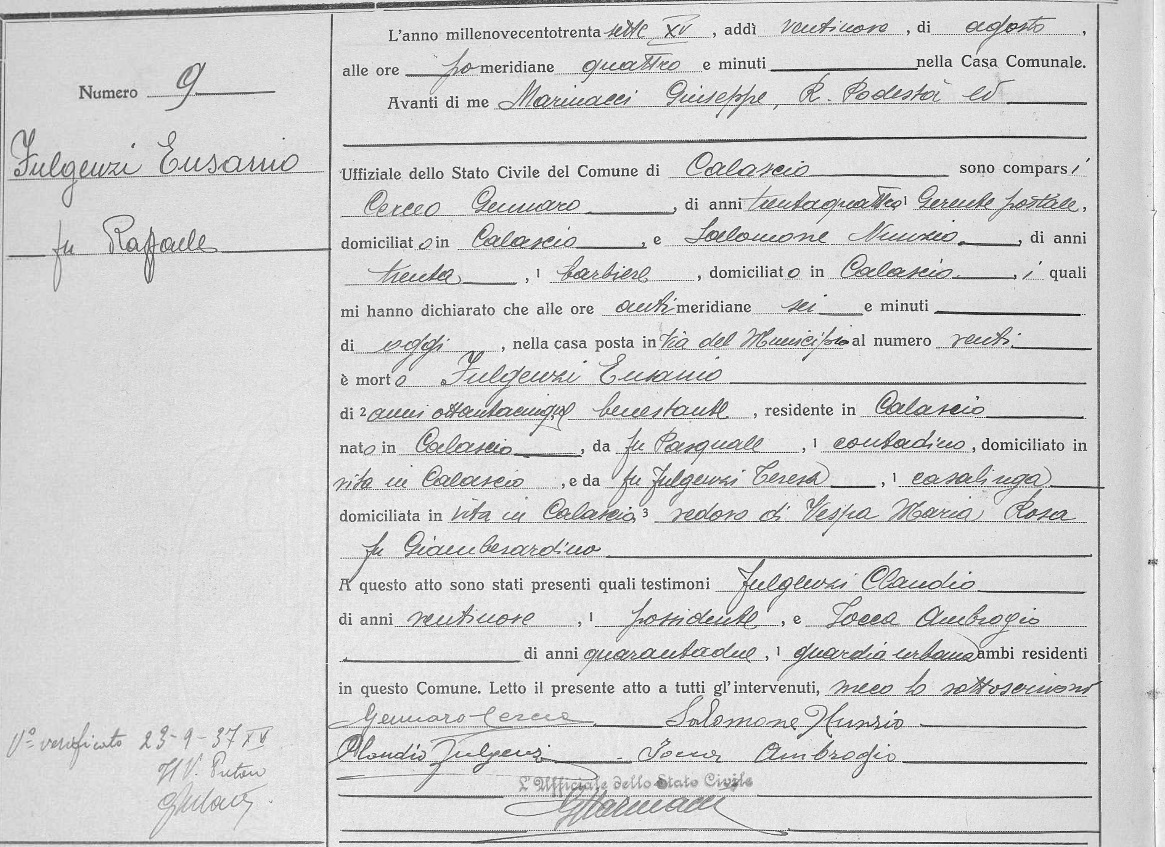 Numero 9
Fulgenzi Eusanio
fu Raffaele
L'anno millenovecentotrenta sette XV, addì ventinove, di agosto,
alle ore pomeridiane quattro e minuti nella Casa Comunale.
Avanti di me Marinacci Giuseppe, R. Podestà ed
Uffiziale dello Stato Civile del Comune di Calascio sono comparsi
Cerceo Gennaro, di anni trentaquattro 1 Gerente postale,
domiciliato in Calascio, e Salomone Nunzio, di anni
trenta, 1 barbiere, domiciliato in Calascio, i quali
mi hanno dichiarato che alle ore antimeridiane sei e minuti
di oggi, nella casa posta in Via del Municipio al numero venti
è morto Fulgenzi Eusanio
di 2 anni ottantacinque benestante, residente in Calascio
nato in Calascio, da fu Pasquale, 1 contadino, domiciliato in
vita in Calascio, e da fu Fulgenzi Teresa, 1 casalinga
domiciliata in vita in Calascio 3 vedovo di Vespa Maria Rosa
fu Giamberardino
A questo atto sono stati presenti quali testimoni Fulgenzi Claudio
di anni ventinove, 1 possidente, e Iocca Ambrogio
di anni quarantadue, 1 guardia urbana ambi residenti
in questo Comune. Letto il presente atto a tutti gl'intervenuti, meco lo sottoscrivono
Gennaro Cerceo Salomone Nunzio
Claudio Fulgenzi - Iocca Ambrogio
L'Ufficiale dello Stato Civile
GMarinacci
V° verificato 23-9-37 XV